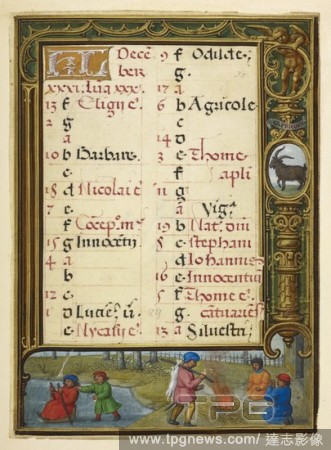 KL Decem 9 f Odilde.
ber g.
xxxi. lūa xxx. 17 a
13 f Eligij e. 6 b Agricole
2 g c
a 14 d
10 b Barbare. 3 e Thome
c f apli
18 d Nicolai e. 11 g
7 e a Vig.
f Cōcep. m. 19 b Nat. dñi
15 g Innocetij 8 c Stephani
4 a d Iohannis
b 16 e Innocentiū
12 c 5 f Thome e.
1 d g
e. Nycasij e. 13 a Silvestri
TPG
www.tpgnews.com/ 達志影像